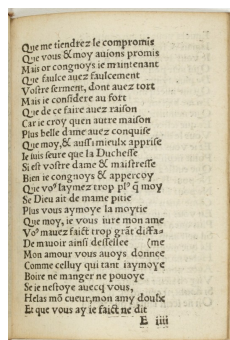 Que me tiendrez le compromis
Que vous & moy auions promis
Mais or congnoys ie maintenant
Que faulce auez faulcement
Vostre serment, dont auez tort
Mais ie considere au fort
Que de ce faire auez raison
Car ie croy quen autre maison
Plus belle dame auez conquise
Que moy, & aussi mieulx apprise
Ie suis seure que la Duchesse
Si est vostre dame & maistresse
Bien ie congnoys & appercoy
Que voꝰ laymez trop plꝰ q̄ moy
Se Dieu ait de mame pitie
Plus vous aymoye la moytie
Que moy, ie vous iure mon ame
Voꝰ mauez faict trop grāt diffa-
De mauoir ainsi dessellee (me
Mon amour vous auoys donnee
Comme celluy qui tant iaymoye
Boire ne manger ne pouoye
Se ie nestoye auecq vous,
Helas mō cueur, mon amy doulx
Et que vous ay ie faict ne dit
E iiii